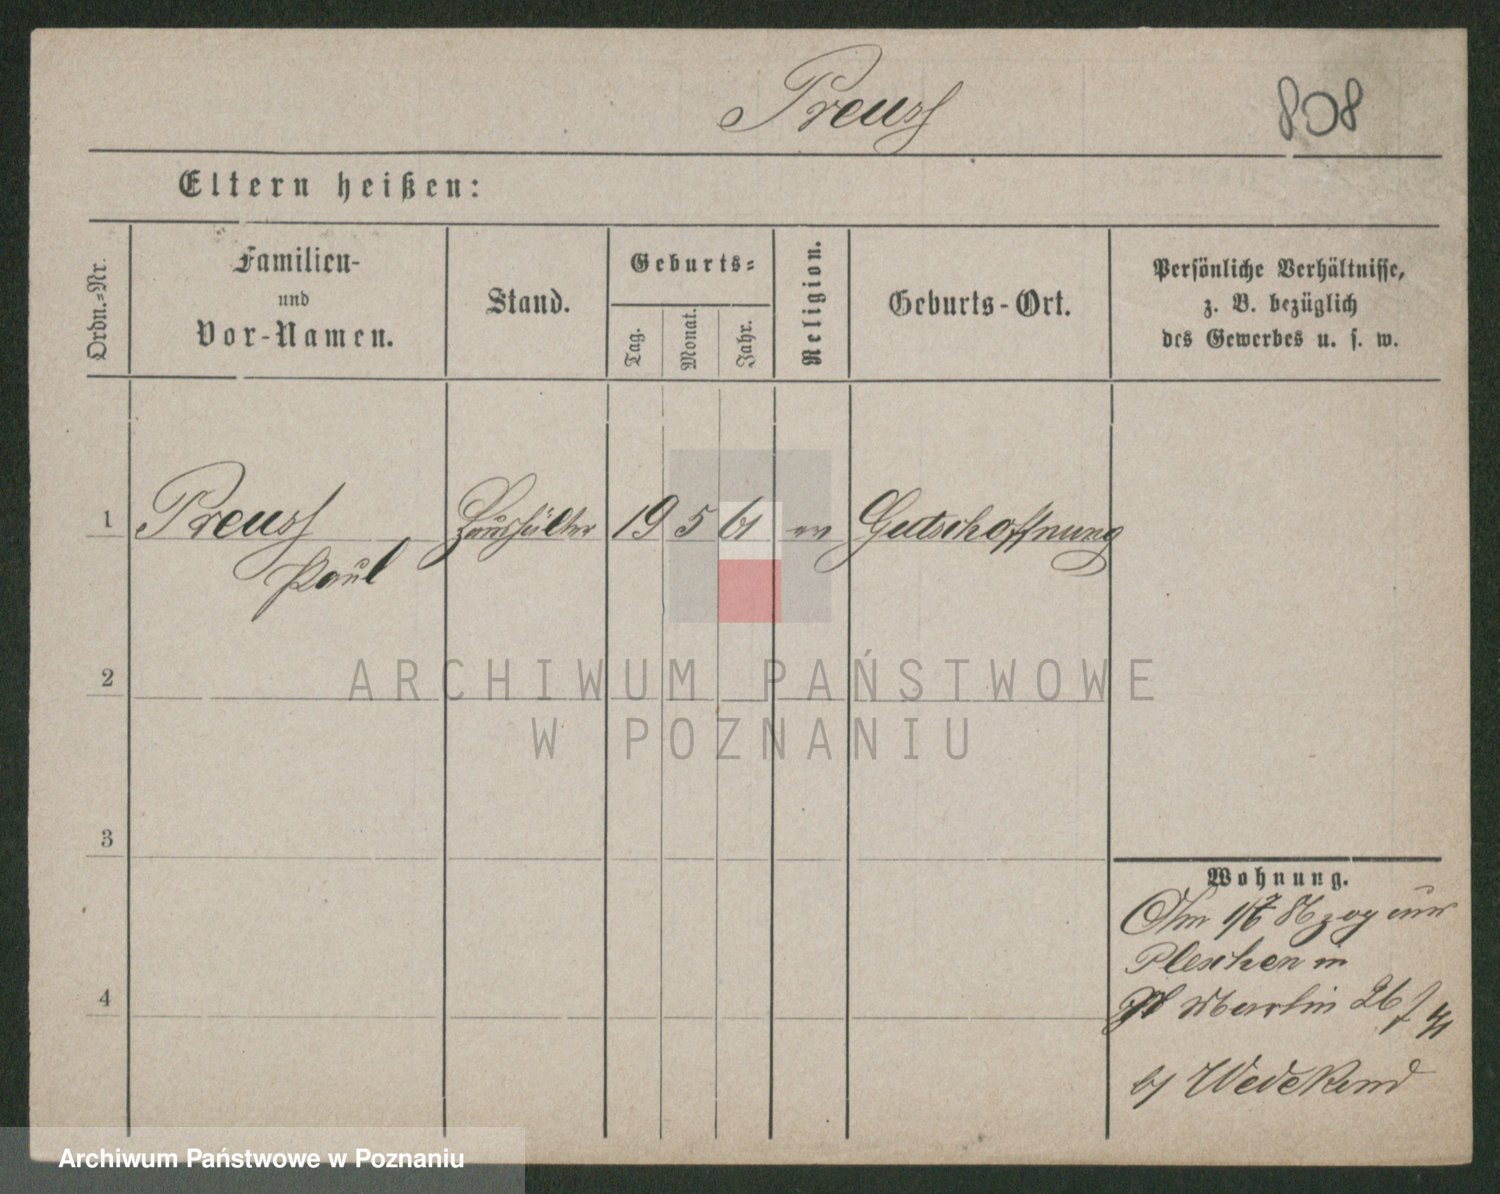 Preusz
808
Eltern heißen:
Ordn.=Nr.
Familien-
und
Vor-Namen.
Stand.
Geburts=
Tag.
Monat.
Jahr.
Religion.
Geburts-Ort.
Persönliche Verhältnisse,
z. B. bezüglich
des Gewerbes u. s. w.
1
Preusz
Paul
Haushälter
19
5
61
ev
Gutschoffnung
2
3
4
Wohnung.
Am zog aus
Pleschen in
St Martin 26
by Wedekend
ARCHIWUM PAŃSTWOWE
W POZNANIU
Archiwum Państwowe w Poznaniu